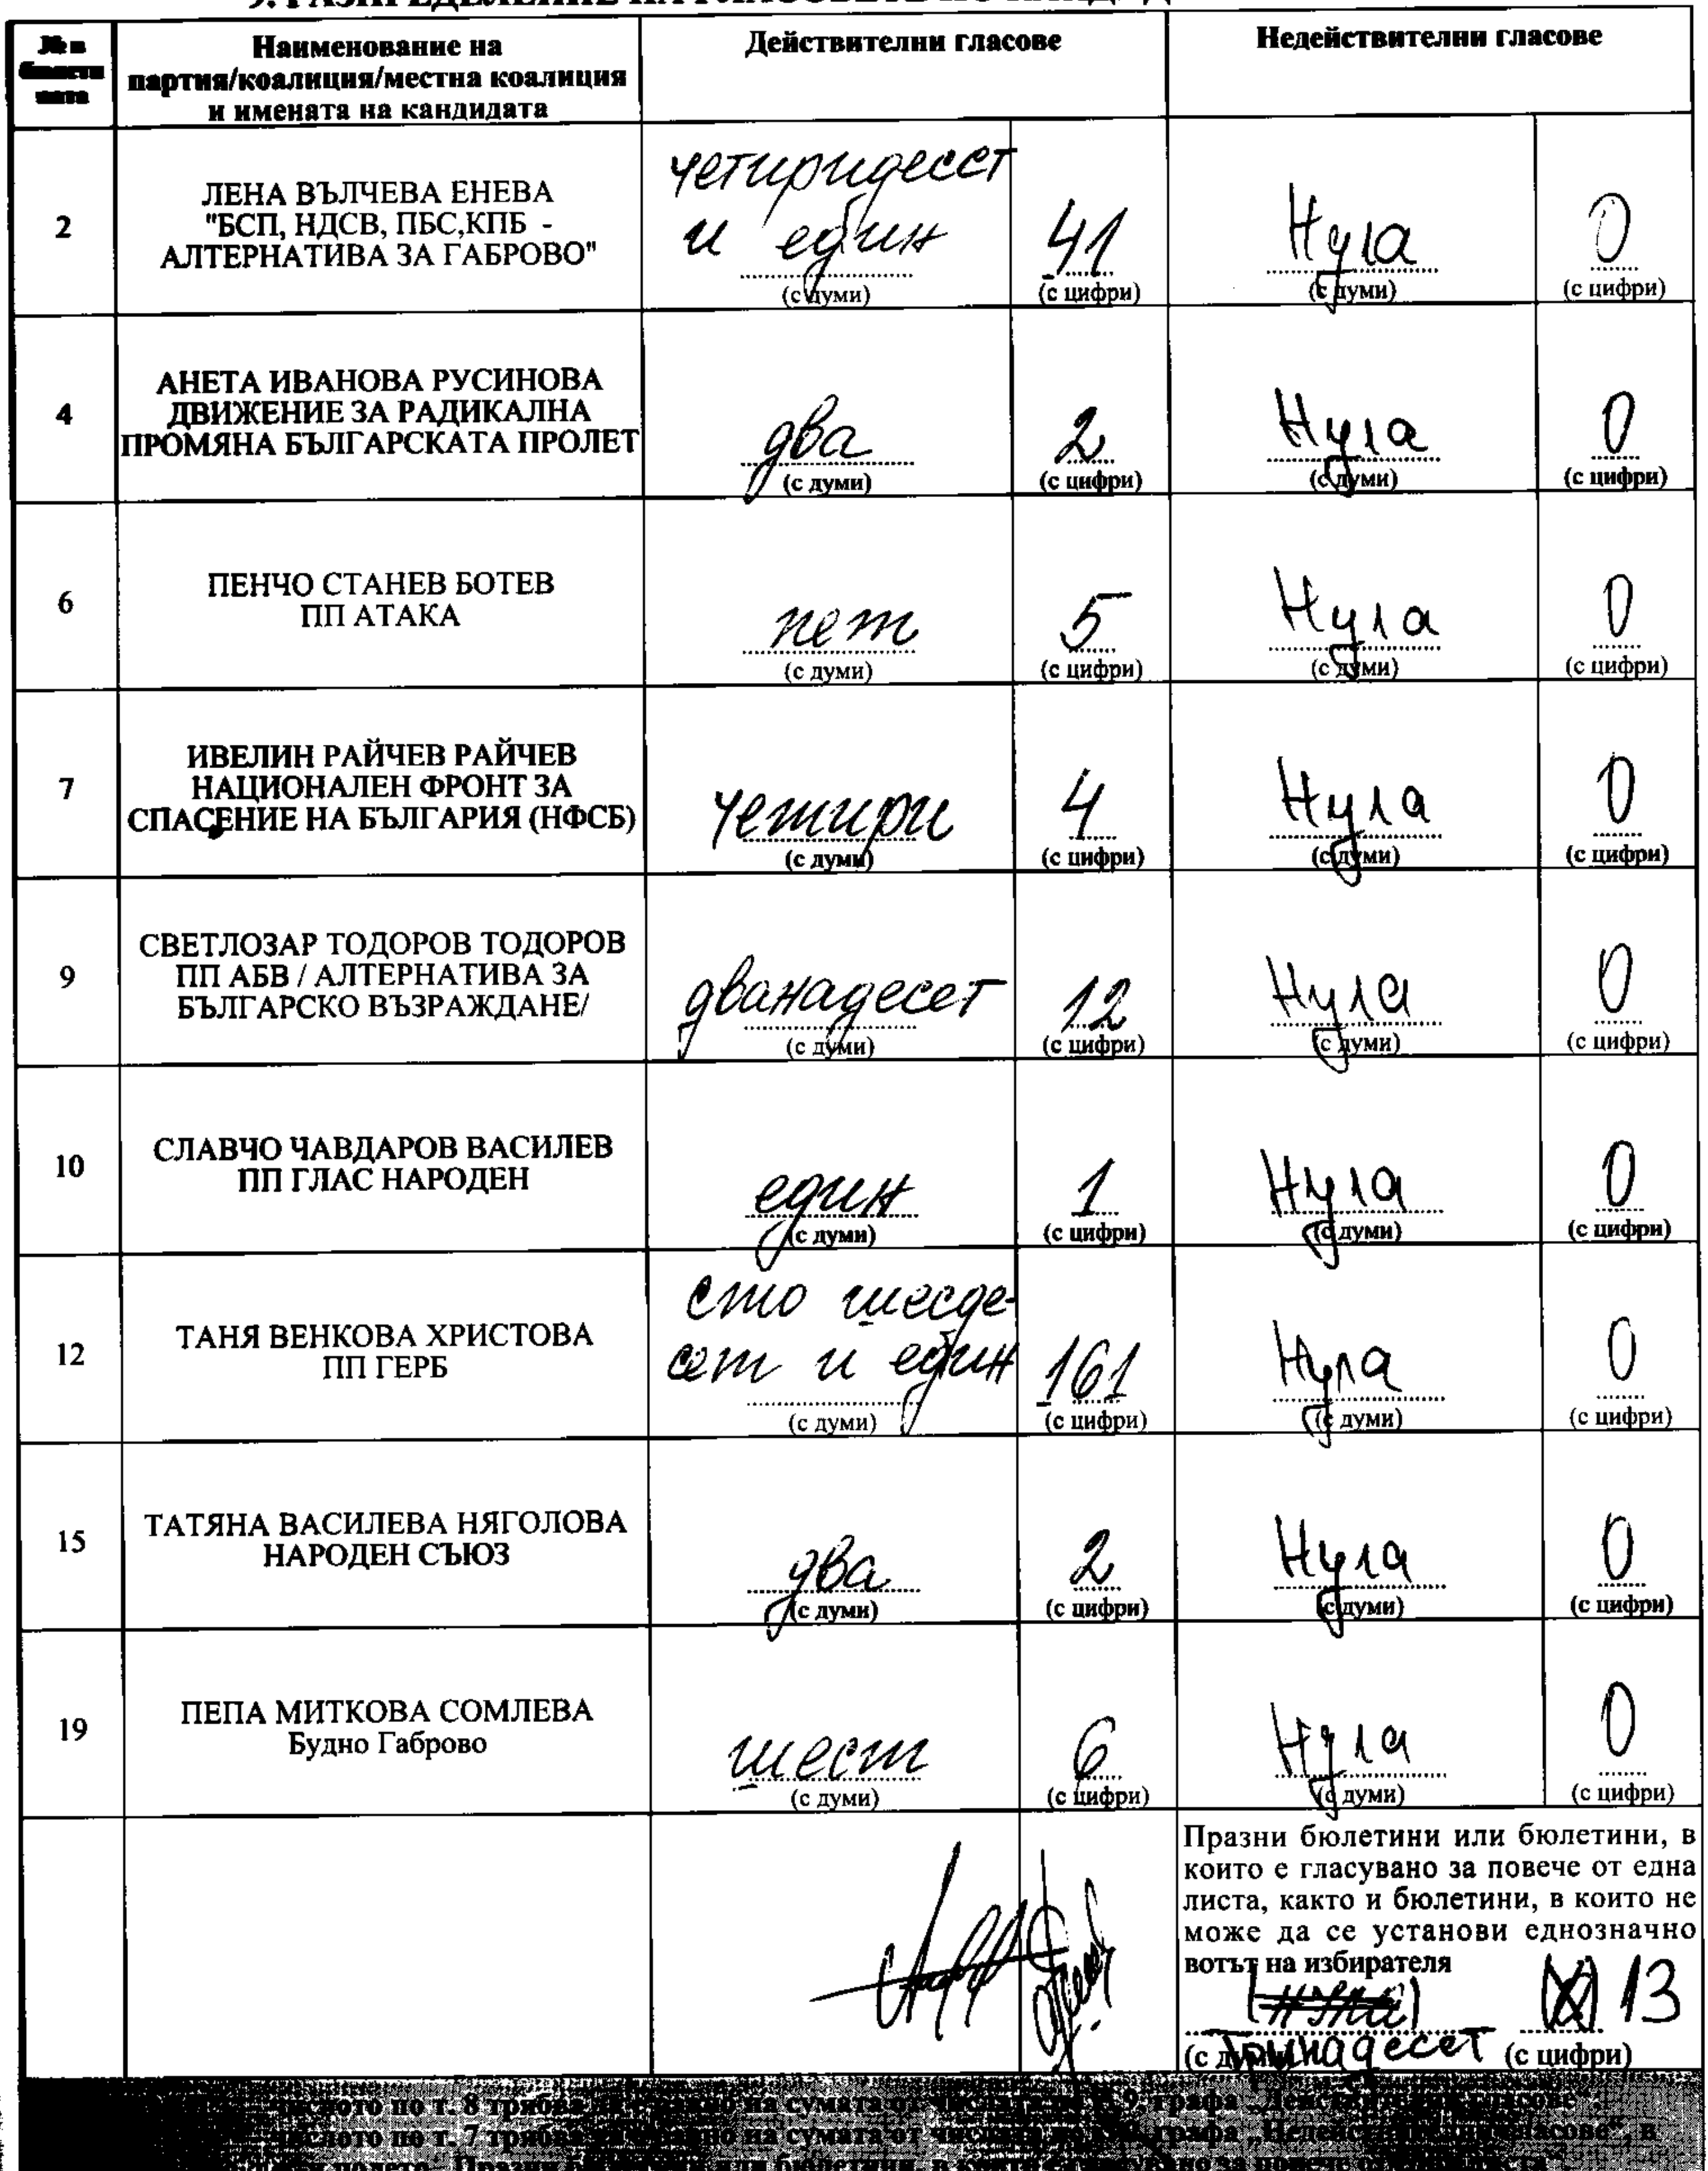 № в
бюлети
ната
Наименование на
партия/коалиция/местна коалиция
и имената на кандидата
Действителни гласове
Недействителни гласове
2
ЛЕНА ВЪЛЧЕВА ЕНЕВА
"БСП, НДСВ, ПБС,КПБ -
АЛТЕРНАТИВА ЗА ГАБРОВО"
четиридесет
и един
(с думи)
41
(с цифри)
Нула
(с думи)
0
(с цифри)
4
АНЕТА ИВАНОВА РУСИНОВА
ДВИЖЕНИЕ ЗА РАДИКАЛНА
ПРОМЯНА БЪЛГАРСКАТА ПРОЛЕТ
два
(с думи)
2
(с цифри)
Нула
(с думи)
0
(с цифри)
6
ПЕНЧО СТАНЕВ БОТЕВ
ПП АТАКА
пет
(с думи)
5
(с цифри)
Нула
(с думи)
0
(с цифри)
7
ИВЕЛИН РАЙЧЕВ РАЙЧЕВ
НАЦИОНАЛЕН ФРОНТ ЗА
СПАСЕНИЕ НА БЪЛГАРИЯ (НФСБ)
четири
(с думи)
4
(с цифри)
Нула
(с думи)
0
(с цифри)
9
СВЕТЛОЗАР ТОДОРОВ ТОДОРОВ
ПП АБВ / АЛТЕРНАТИВА ЗА
БЪЛГАРСКО ВЪЗРАЖДАНЕ/
дванадесет
(с думи)
12
(с цифри)
Нула
(с думи)
0
(с цифри)
10
СЛАВЧО ЧАВДАРОВ ВАСИЛЕВ
ПП ГЛАС НАРОДЕН
един
(с думи)
1
(с цифри)
Нула
(с думи)
0
(с цифри)
12
ТАНЯ ВЕНКОВА ХРИСТОВА
ПП ГЕРБ
сто шесде-
сет и един
(с думи)
161
(с цифри)
Нула
(с думи)
0
(с цифри)
15
ТАТЯНА ВАСИЛЕВА НЯГОЛОВА
НАРОДЕН СЪЮЗ
два
(с думи)
2
(с цифри)
Нула
(с думи)
0
(с цифри)
19
ПЕПА МИТКОВА СОМЛЕВА
Будно Габрово
шест
(с думи)
6
(с цифри)
Нула
(с думи)
0
(с цифри)
Празни бюлетини или бюлетини, в
които е гласувано за повече от една
листа, както и бюлетини, в които не
може да се установи еднозначно
вотът на избирателя
(нула)
(0) 13
Тринадесет
(с думи)
(с цифри)
числото по т. 8 трябва да е равно на сумата от числата по т. 9, графа „Действителни гласове".
числото по т. 7 трябва на сумата от числата графа „Недействителни гласове", в
полето Празни бюлетини или бюлетини, в които е гласувано за повече от листа"